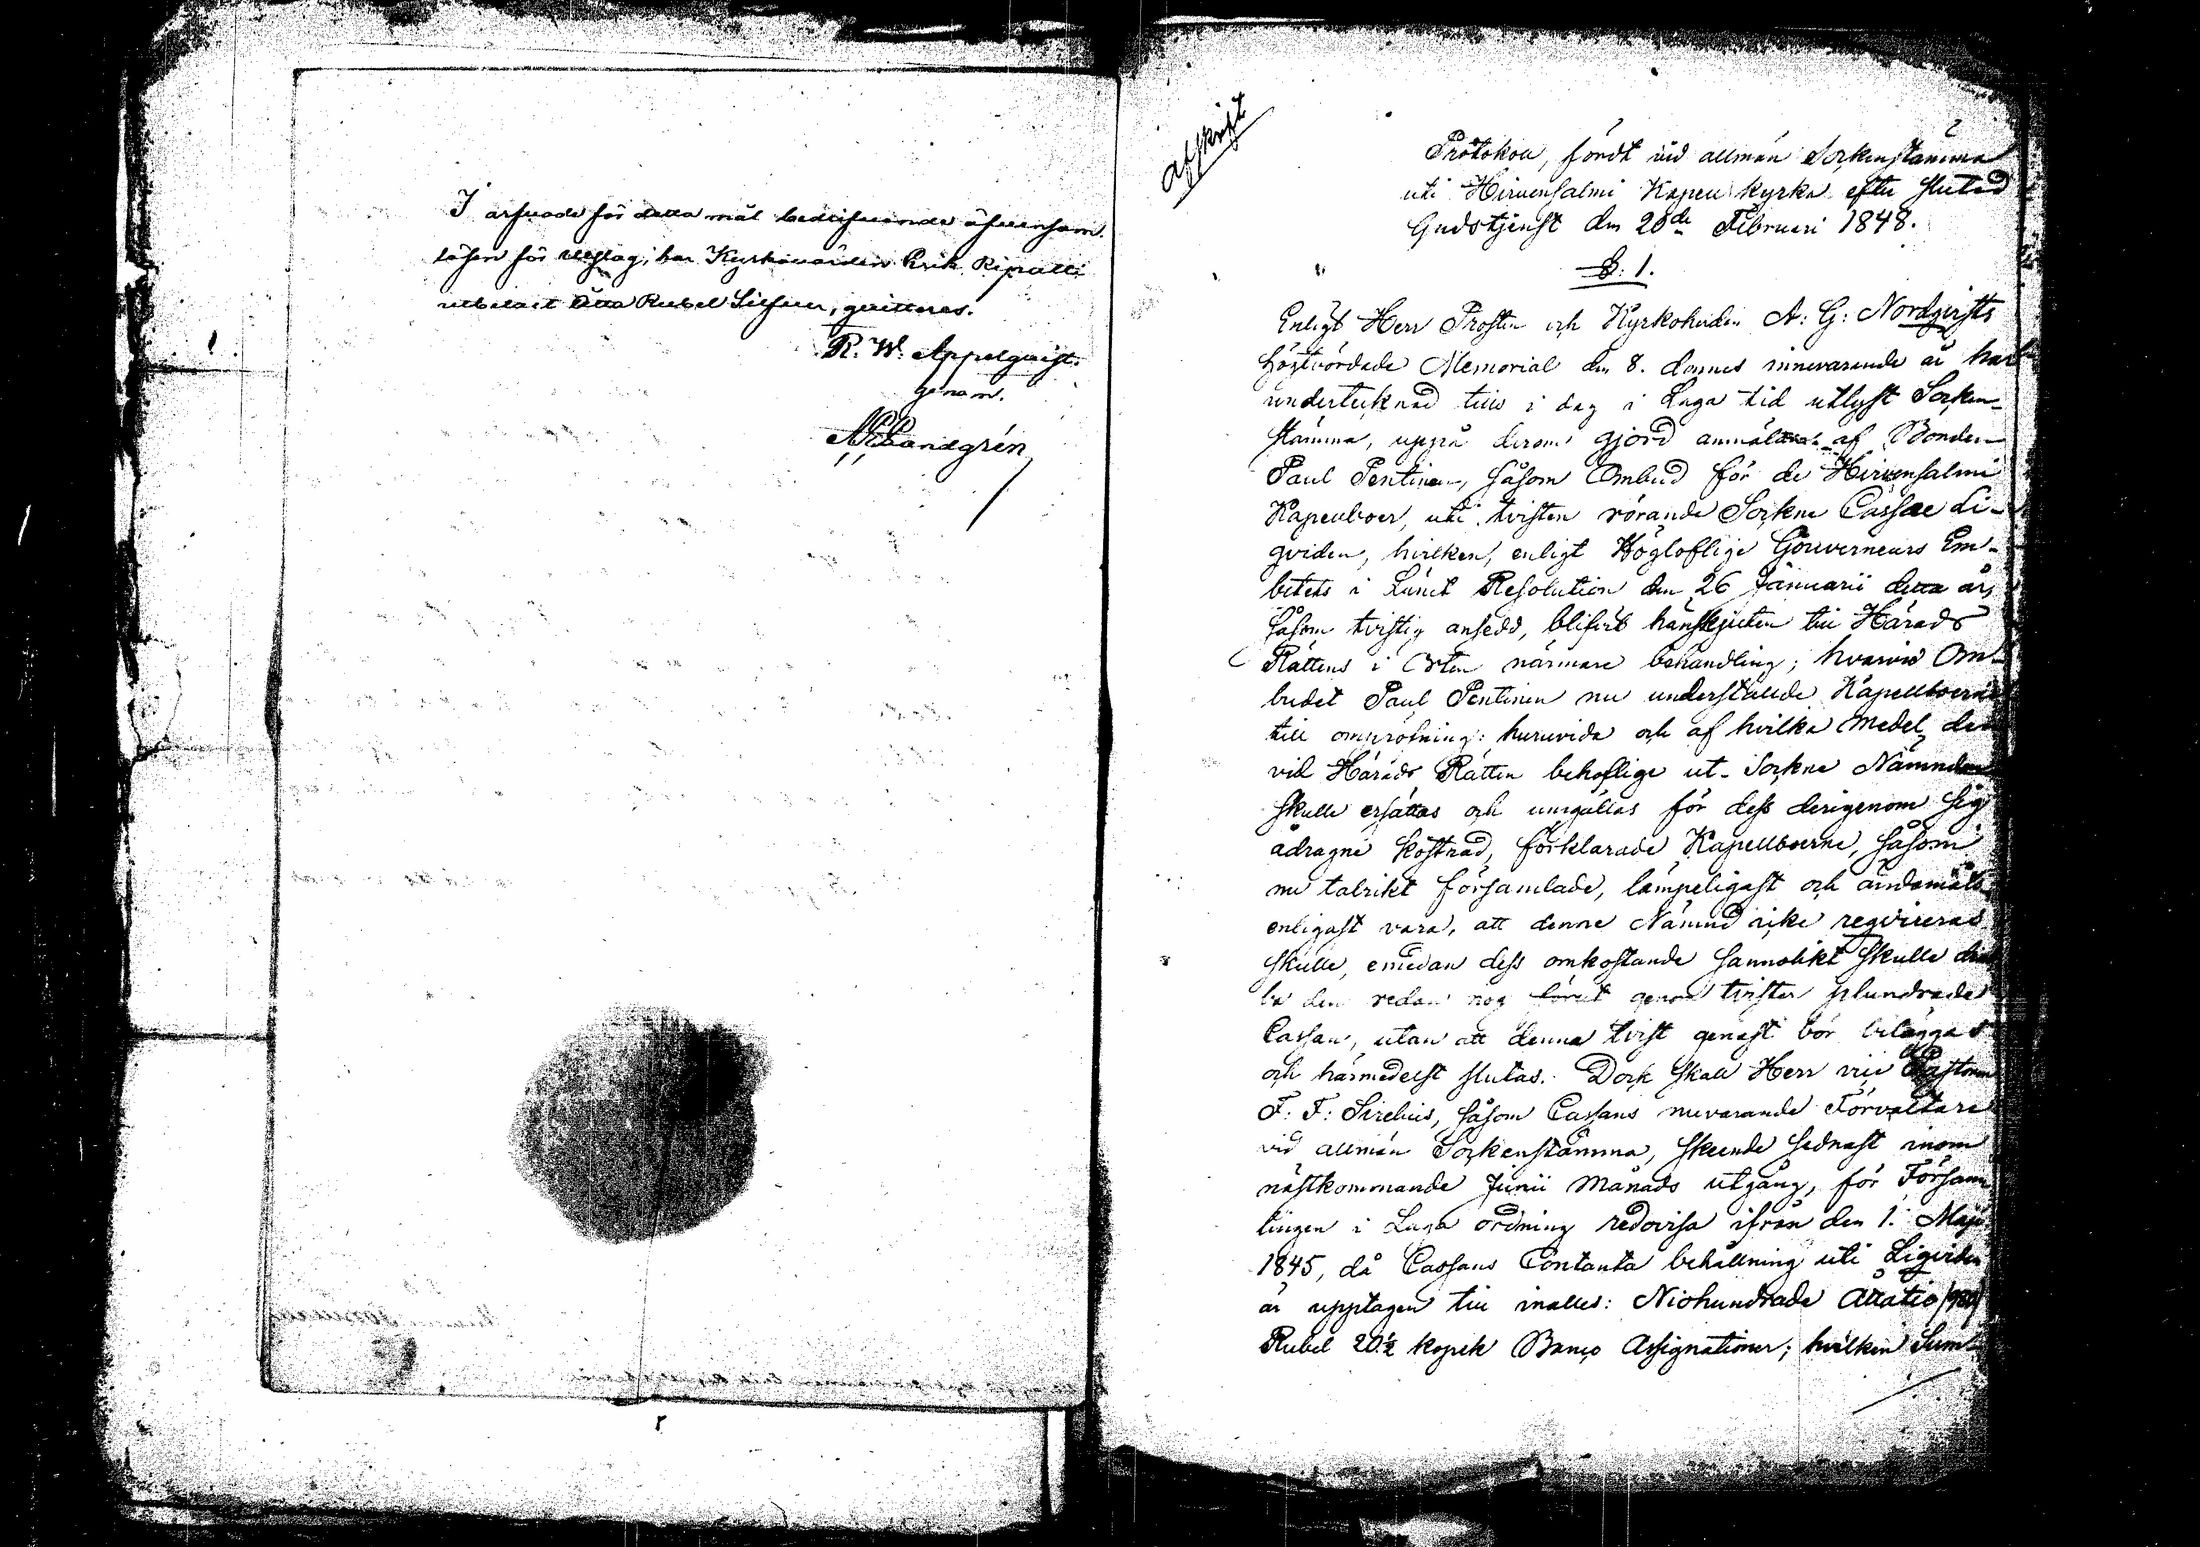 I arfvode för detta mål bedrifvande äfvensom
lösen för utslag, har Kyrkovärden Erik Ripatti
utbetalt Åtta Rubel Silfver, qvitteras.
R. W. Appelqvist.
genom.
Sandgrén
Afskrift
2
Protokoll, fördt vid allmän Sockenstämma
uti Hirvensalmi Kapell kyrka efter slutad
Gudstjenst den 20de Februari 1848.
§. 1.
Enligt Herr Prosten och Kyrkoherden A: G: Nordqvists
högtvördade Memorial den 8. dennes innevarande år har
undertecknad till i dag i Laga tid utlyst Socken-
stämma, uppå derom gjord anmälan af Bonden
Paul Pentinen, såsom Ombud för de Hirvensalmi
Kapellboer, uti tvisten rörande Sockne Cassae Li-
qviden, hvilken, enligt Högloflige Gouverneurs Em-
betets i Länet Resolution den 26 Januarii detta år,
såsom tvistig ansedd, blifvit hänskjuten till Härads
Rättens i Orten närmare behandling; hvarvid Om-
budet Paul Pentinen nu understälde Kapellboerne
till ompröfning: huruvida och af hvilka medel den
vid Härads Rätten behöflige ut- Sockne Nämnden
skulle ersättas och umgällas för dess derigenom sig
ådragne kostnad, förklarade Kapellboerne, såsom
nu talrikt församlade, lämpeligast och ändamåls
enligast vara, att denne Nämnd icke reqvireras
skulle, emedan dess omkostande sannolikt skulle
den redan nog förut genom tvister plundrade
Cassan, utan att denna tvist genast bör biläggas
och härmedelst slutas. Dock skall Herr vice Pastorn
F: F: Sirelius, såsom Cassans nuvarande Förvaltare
vid allmän Sockenstämma, skeende sednast inom
nästkommande Junii Månads utgång, för Försam
lingen i Laga ordning redovisa ifrån den 1. Maji
1845, då Cassans Contanta behållning uti Liqviden
är upptagen till inalles: Niohundrade Åttatio /980/
Rubel 20 ½ kopek Banco Assignationer; hvilken Sum-